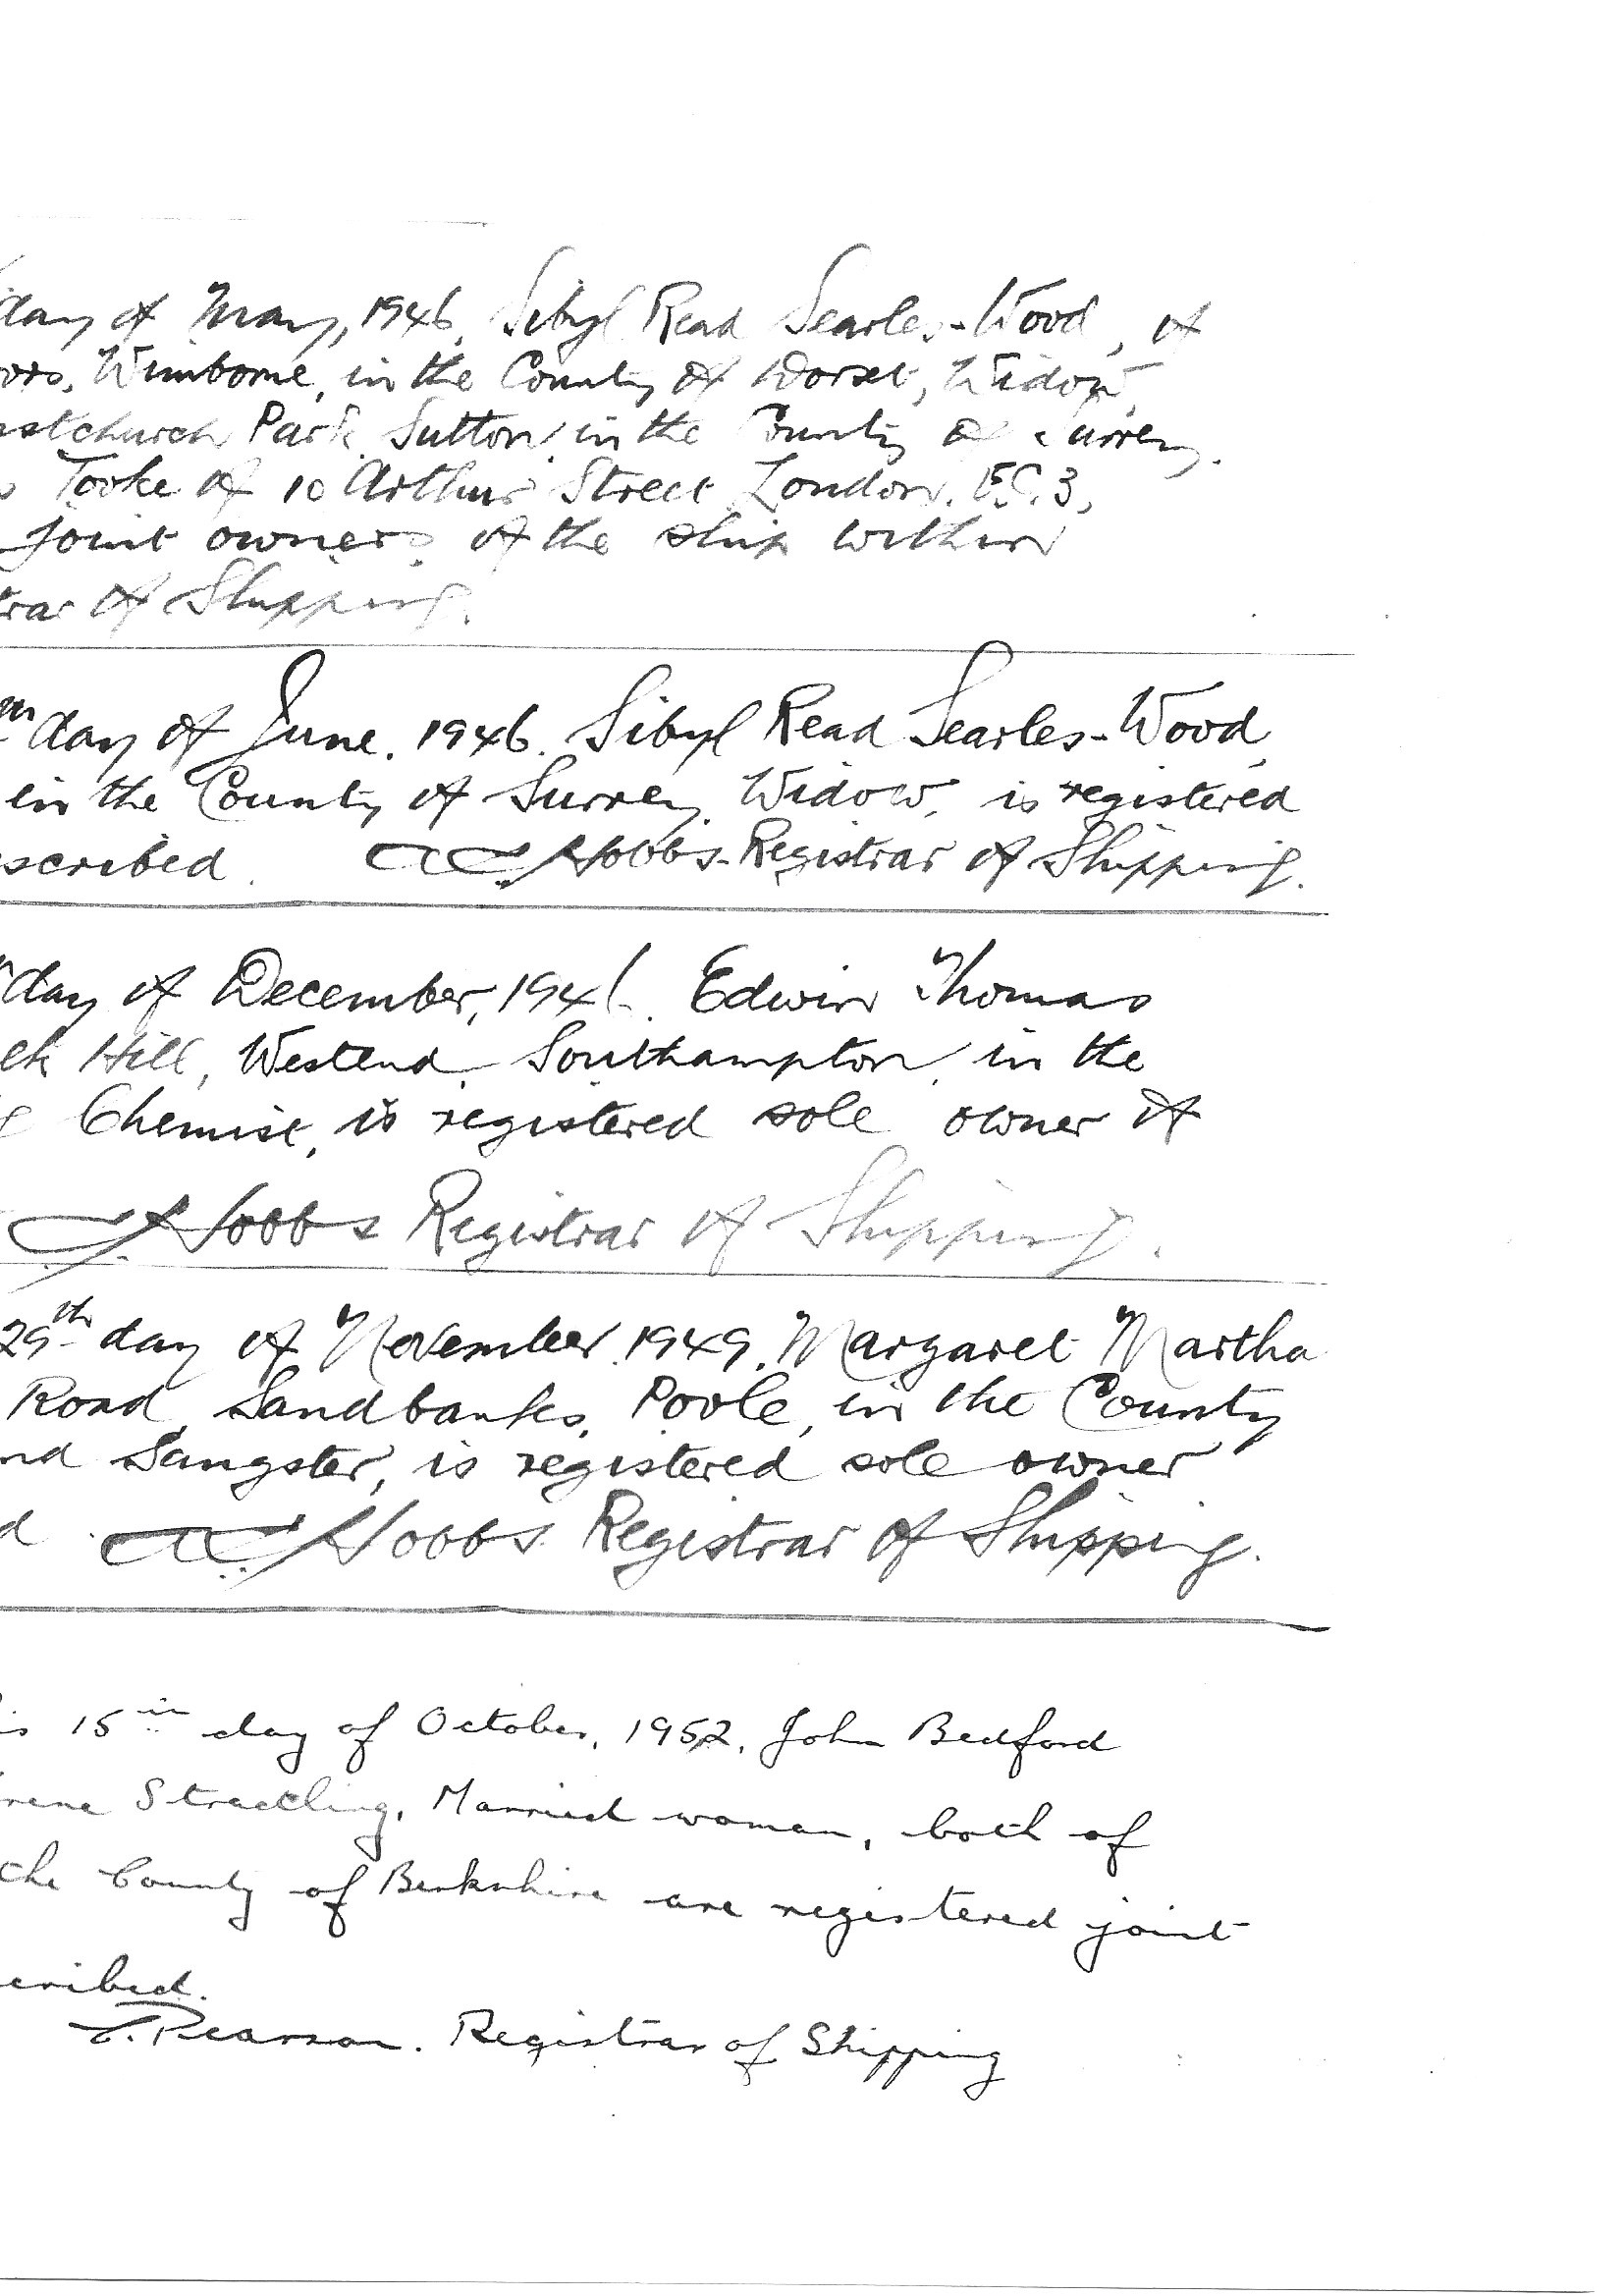 day of May, 1946, Sibyl Read Searles-Wood, of
Wimborne, in the County of Dorset, Widow,
stchurch Park Sutton in the County of Surrey.
Tooke of 10 Arthur Street London. E.C.3,
joint owners of the ship within
trar of Shipping.
day of June. 1946. Sibyl Read Searles-Wood,
in the County of Surrey, Widow, is registered
scribed. Hobbs Registrar of Shipping.
day of December, 194 Edwin Thomas
Hill, Westend, Southampton, in the
Chemist, is registered sole owner of
Hobbs Registrar of Shipping.
29th day of November 1949. Margaret Martha
Road, Sandbanks, Poole, in the County
nd Sangster, is registered sole owner
d Hobbs Registrar of Shipping.
is 15th day of October, 1952, John Bedford
rene Stradling, Married woman, both of
the County of Berkshire are registered joint
cribed.
Pearson. Registrar of Shipping